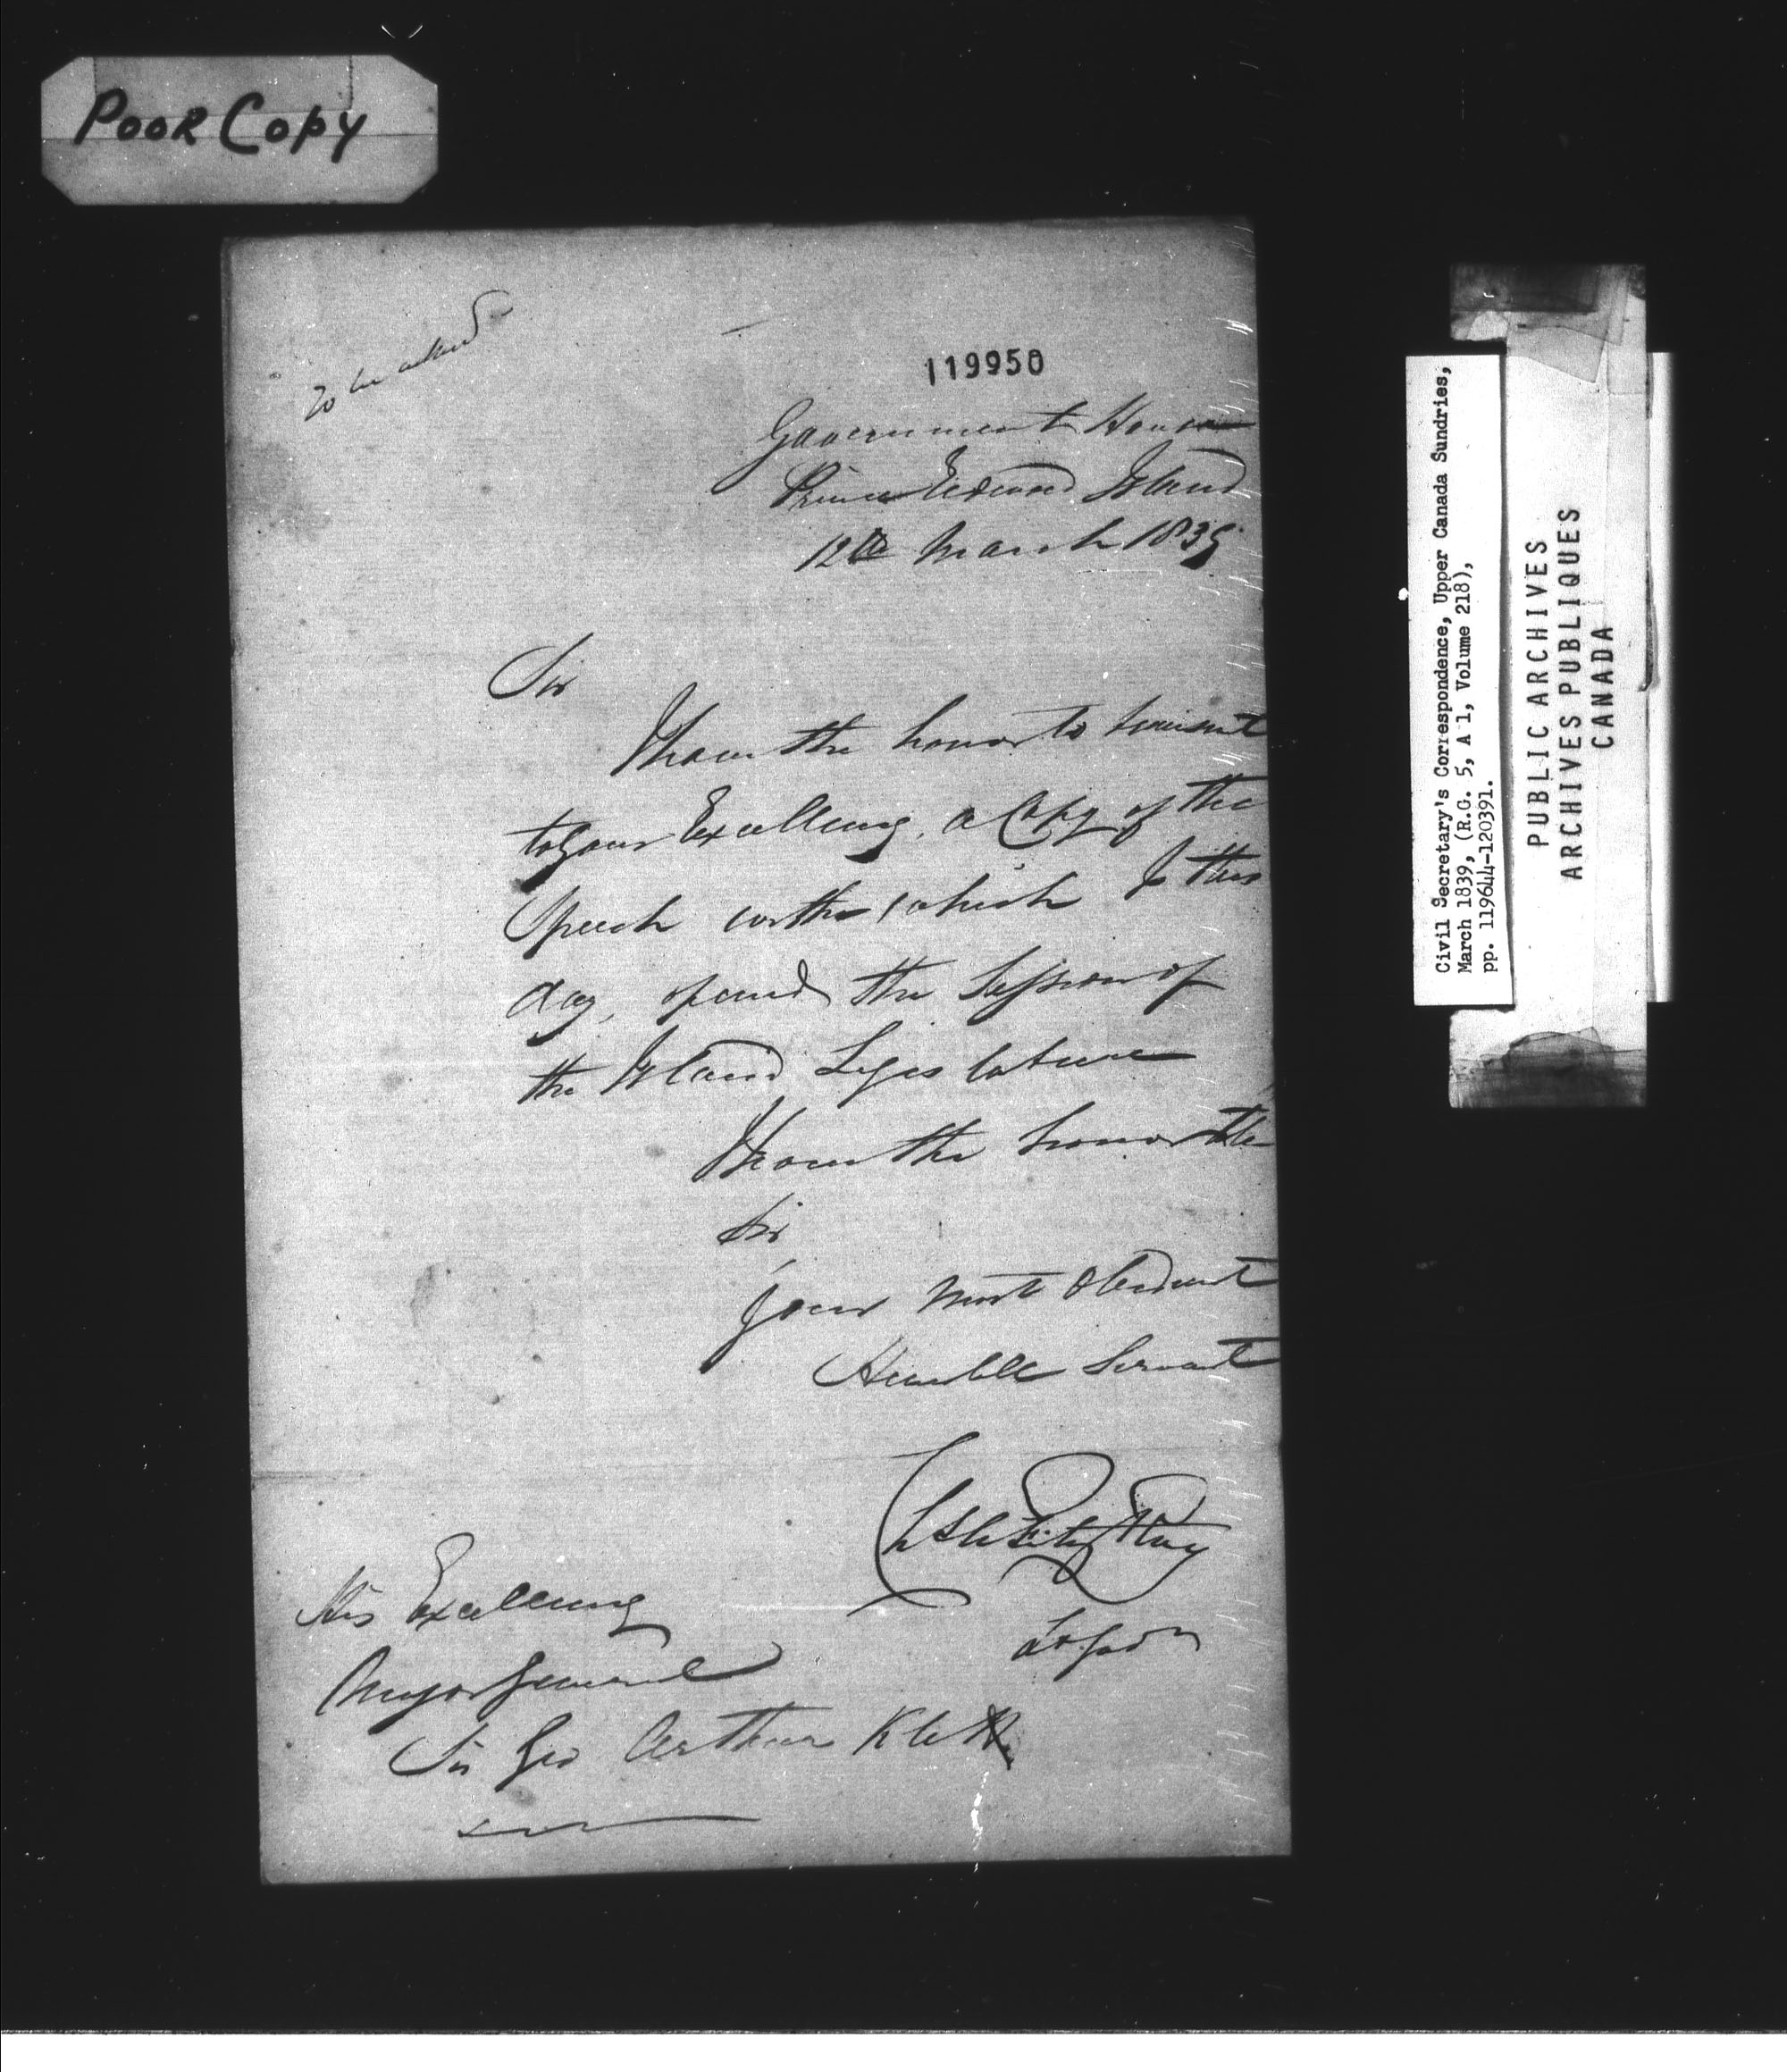 Poor Copy
119950
Government House
Prince Edward Island
12th March 1839
Sir
I have the honor to transmit
to Your Excellency, a Copy of the
Speech with which I this
day, opened the Session of
the Island Legislature
I have the honor to be
Sir
Your Most Obedient
Humble Servant
FitzRoy
Lt Govr
His Excellency
Major General
Sir Geo Arthur K C H
Civil Secretary's Correspondence, Upper Canada Sundries,
March 1839, (R.G. 5, A 1, Volume 218),
pp. 119644-120391.
PUBLIC ARCHIVES
ARCHIVES PUBLIQUES
CANADA